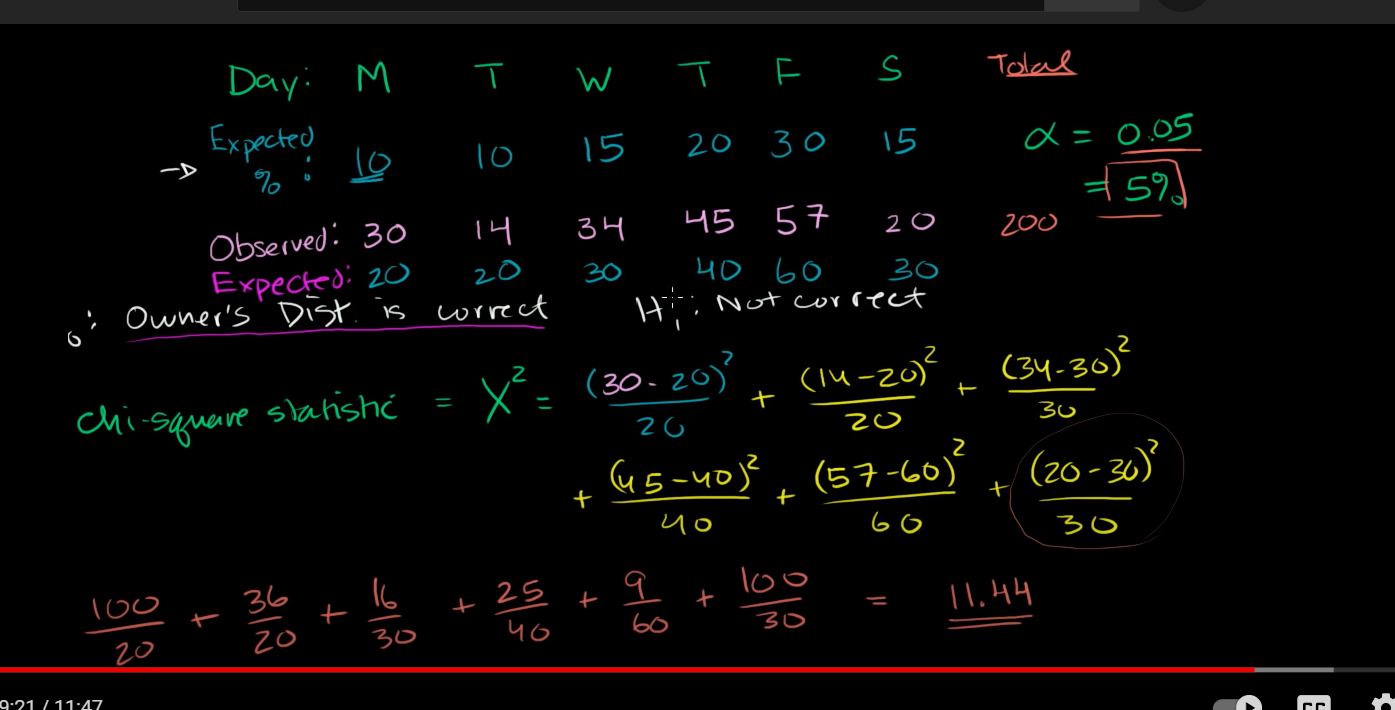 Day: M T W T F S Total
Expected %: 10 10 15 20 30 15
α = 0.05
= 5%
Observed: 30 14 34 45 57 20 200
Expected: 20 20 30 40 60 30
o: Owner's Dist. is correct H₁: Not correct
chi-square statistic = X² = (30-20)²/20 + (14-20)²/20 + (34-30)²/30
+ (45-40)²/40 + (57-60)²/60 + (20-30)²/30
100/20 + 36/20 + 16/30 + 25/40 + 9/60 + 100/30 = 11.44
9:21 / 11:47 CC